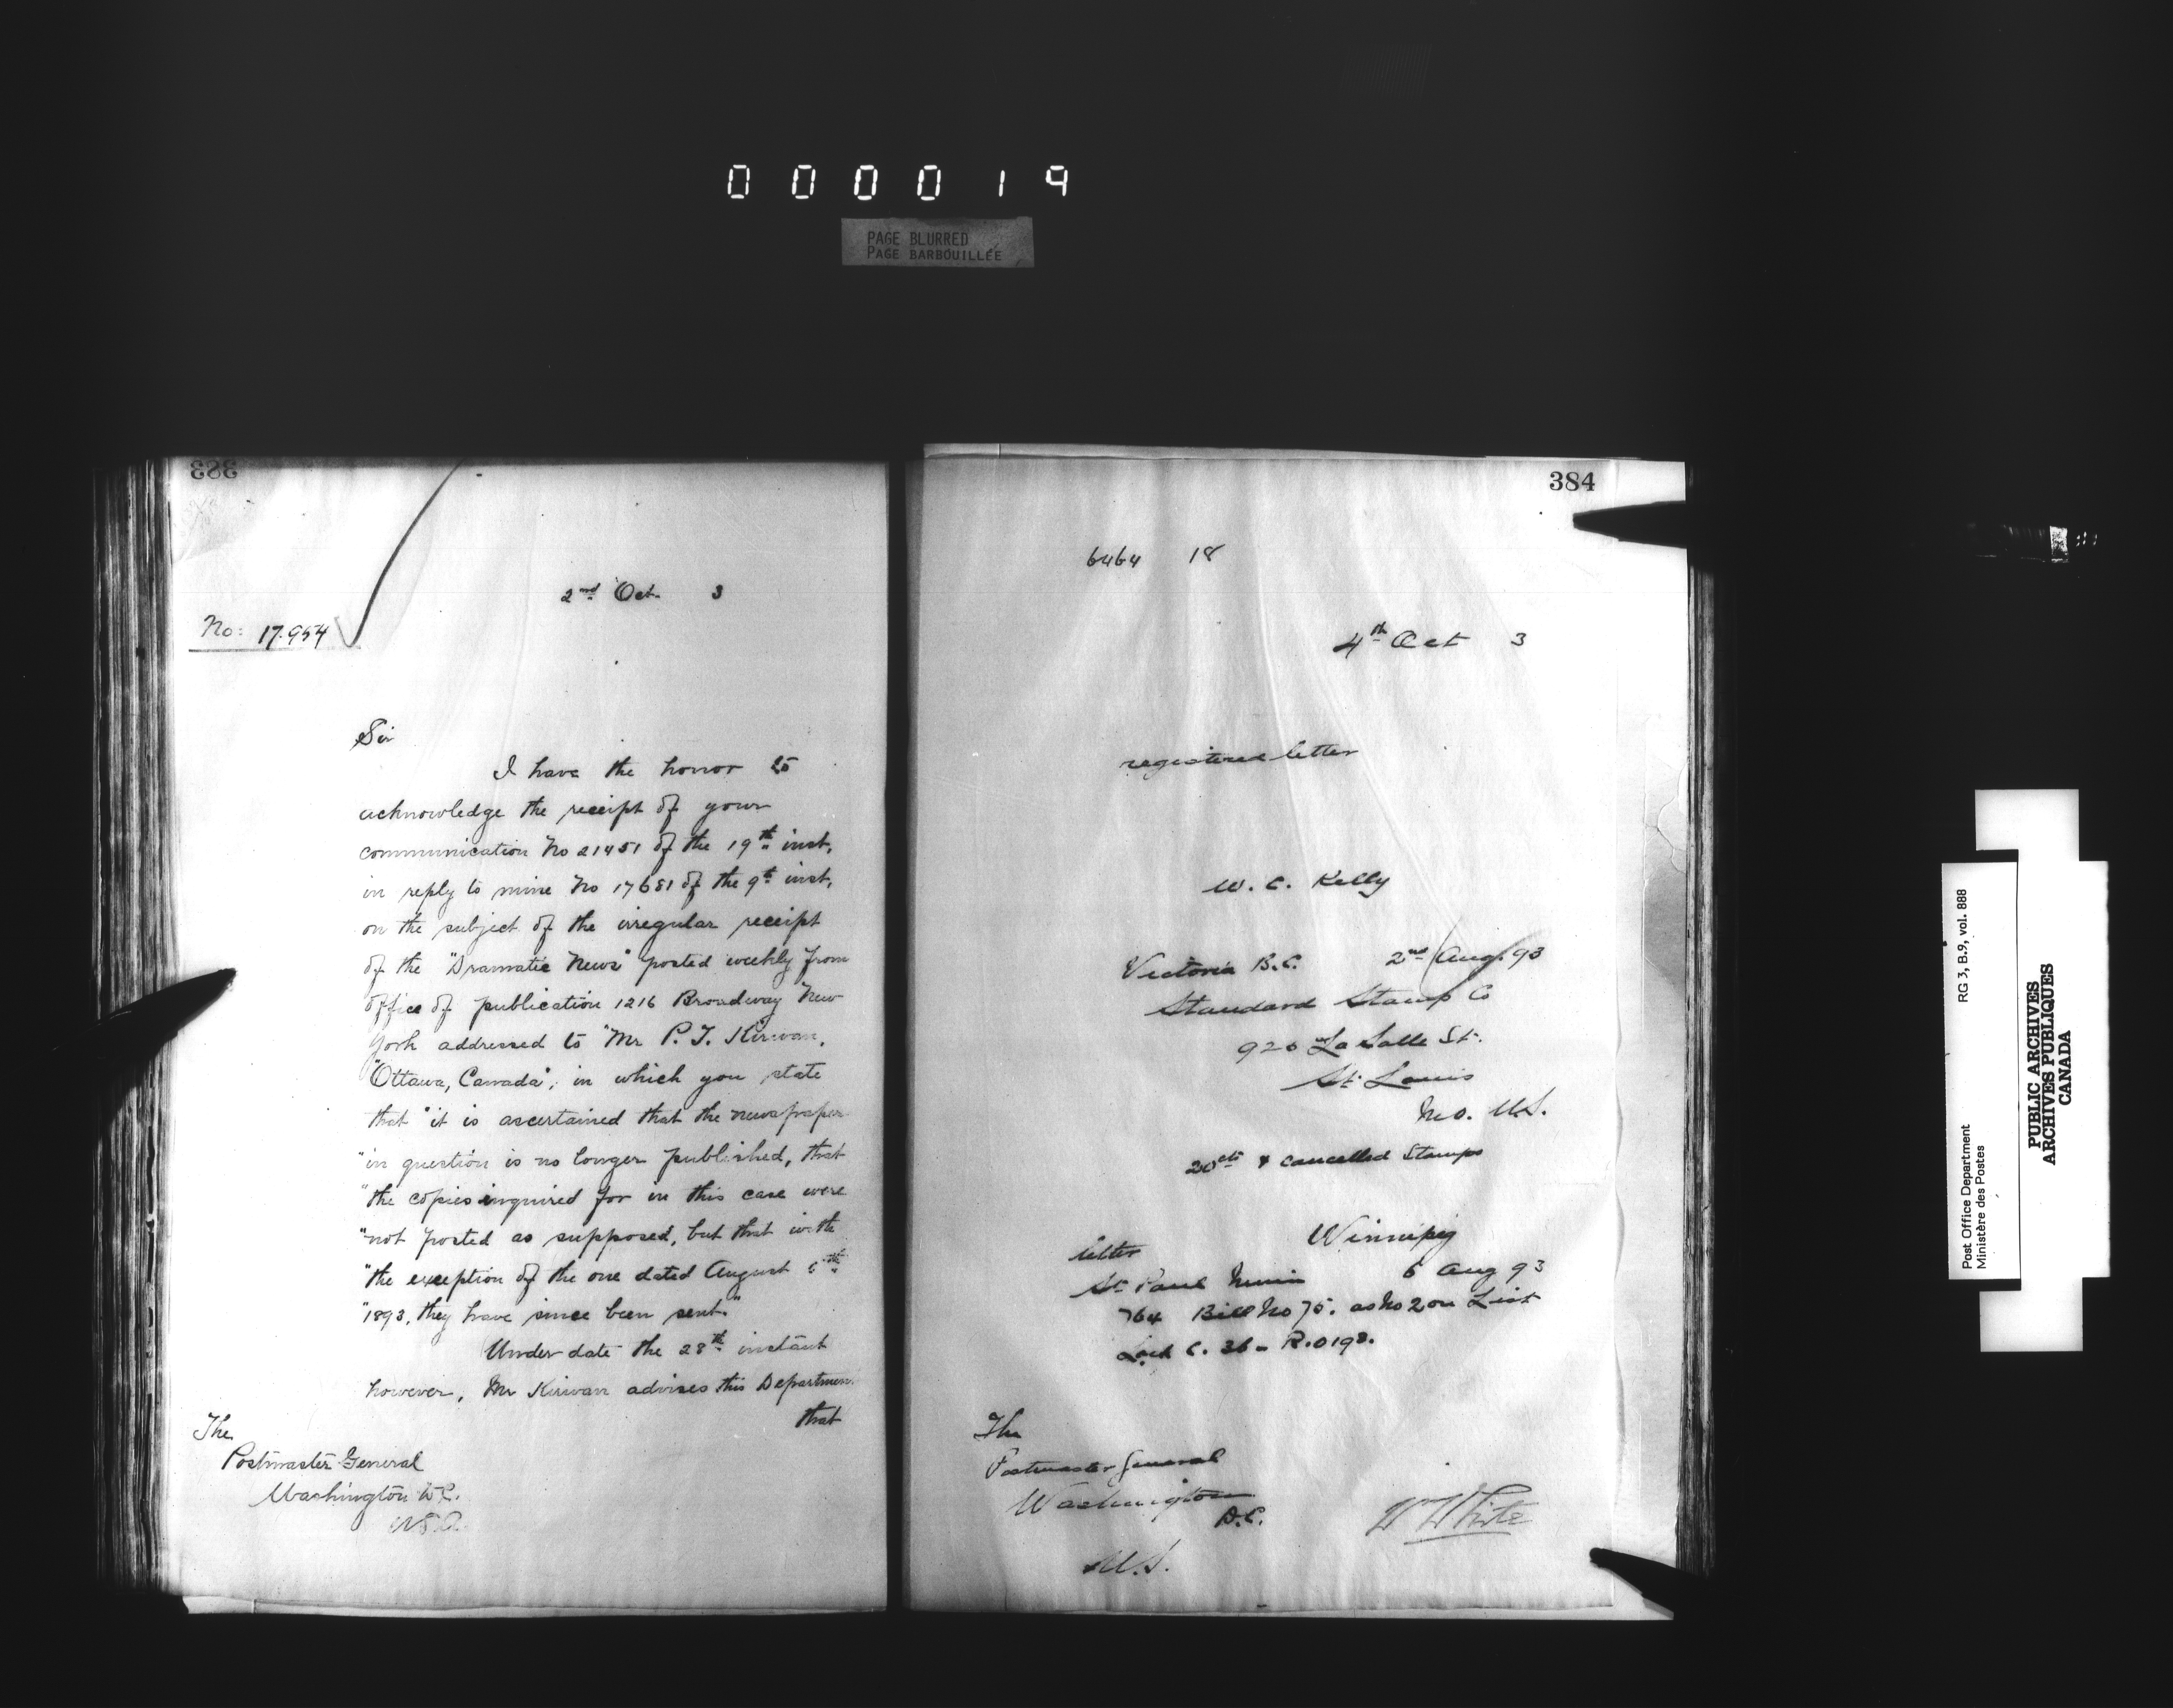 000019
PAGE BLURRED
PAGE BARBOUILLÉE
383
2nd Oct. 3
No: 17.954
Sir
I have the honor to
acknowledge the receipt of your
communication No 21451 of the 19th inst,
in reply to mine No 17681 of the 9th inst,
on the subject of the irregular receipt
of the "Dramatic News" posted weekly from
office of publication 1216 Broadway New
York addressed to "Mr P. J. Kirwan,
"Ottawa, Canada", in which you state
that "it is ascertained that the newspaper
"in question is no longer published, that
"the copies inquired for in this case were
"not posted as supposed, but that with
"the exception of the one dated August
"1893, they have since been sent."
Under date the 28th instant
however, Mr Kirwan advises this Department
that
The
Postmaster General
Washington D.C.
U.S.A.
384
6464 18
4th Oct 3
registered letter
W. C. Kelly
Victoria B.C. 2nd Aug. 93
Standard Stamp Co
920 La Salle St.
St. Louis
Mo. U.S.
20cts & cancelled Stamps
Winnipeg
letter
St Paul Minn 6 Aug 93
764 Bill No 75. as No 2 on List
Lock C. 36 - R.0198.
The
Postmaster General
Washington
D.C.
U.S.
W White
Post Office Department
Ministère des Postes
RG 3, B.9, vol. 888
PUBLIC ARCHIVES
ARCHIVES PUBLIQUES
CANADA